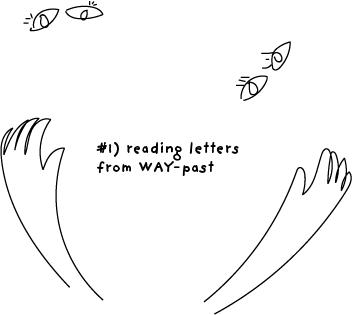 #1) reading letters
from WAY-past